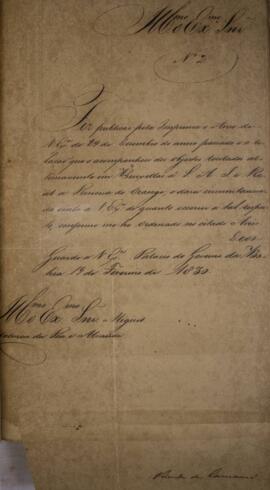 Illmo e Exmo Snr
Nº 2
Fiz publicar pela Imprensa o Aviso de
V. Exª de 29 de Dezembro do anno passado e a re-
lação que o acompanhou dos objectos roubados ul-
timamente em Bruxellas á S. A. I. e Re-
al a Princeza de Orange, e darei immediatamen-
te conta a V. Exª de quanto occorrer a tal respei-
to, conforme me he ordenado no citado Aviso
Deos
Guarde a V. Exª Palacio do Governo da Ba-
hia 19 de Fevereiro de 1830
Illmo e Exmo Snr Miguel
Calmon du Pin e Almeida
Visconde de Camamú